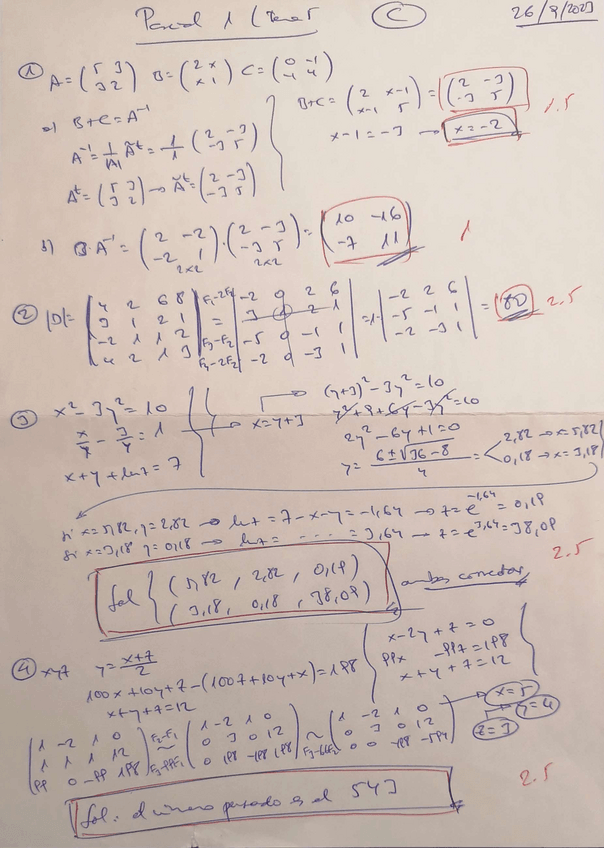 Parcial 1 (Tema 5 C 26/9/2023
① A = (5 3 / 3 2) B = (2 x / x 1) C = (0 -1 / -1 4)
a) B+C = A⁻¹
B+C = (2 x-1 / x-1 5) = (2 -3 / -3 5) 1.5
A⁻¹ = 1/|A| Ãᵗ = 1/1 (2 -3 / -3 5)
x-1 = -3 → x = -2
Aᵗ = (5 3 / 3 2) → Ãᵗ = (2 -3 / -3 5)
b) B·A⁻¹ = (2 -2 / -2 1) 2x2 · (2 -3 / -3 5) 2x2 = (10 -16 / -7 11) 1
② |D| = |4 2 6 8 / 3 1 2 1 / -2 1 1 2 / 4 2 1 3| F₁-2F₂ = F₃-F₂ F₄-2F₂ |-2 0 2 6 / 3 1 2 1 / -5 0 -1 1 / -2 0 -3 1| = 1·|-2 2 6 / -5 -1 1 / -2 -3 1| = 80 2.5
③ x² - 3y² = 10
x/y - 3/y = 1 → x = y+3
x + y + ln z = 7
(y+3)² - 3y² = 10
y² + 9 + 6y - 3y² = 10
2y² - 6y + 1 = 0
y = (6 ± √36-8)/4 = 2,82 → x = 5,82
0,18 → x = 3,18
si x = 5,82, y = 2,82 → ln z = 7 - x - y = -1,64 → z = e^-1,64 = 0,19
si x = 3,18 y = 0,18 → ln z = - ... = 3,64 → z = e^3,64 = 38,09
2.5
Sol { (5,82 , 2,82 , 0,19)
(3,18 , 0,18 , 38,09)
ambas correctas
④ xyz y = (x+z)/2
100x + 10y + z - (100z + 10y + x) = 198
x + y + z = 12
x - 2y + z = 0
99x - 99z = 198
x + y + z = 12
(1 -2 1 0 / 1 1 1 12 / 99 0 -99 198) F₂-F₁ ~ F₃-99F₁ (1 -2 1 0 / 0 3 0 12 / 0 198 -198 198) ~ F₃-66F₂ (1 -2 1 0 / 0 3 0 12 / 0 0 -198 -594) → x = 5
y = 4
z = 3
2.5
Sol. el número pensado es el 543